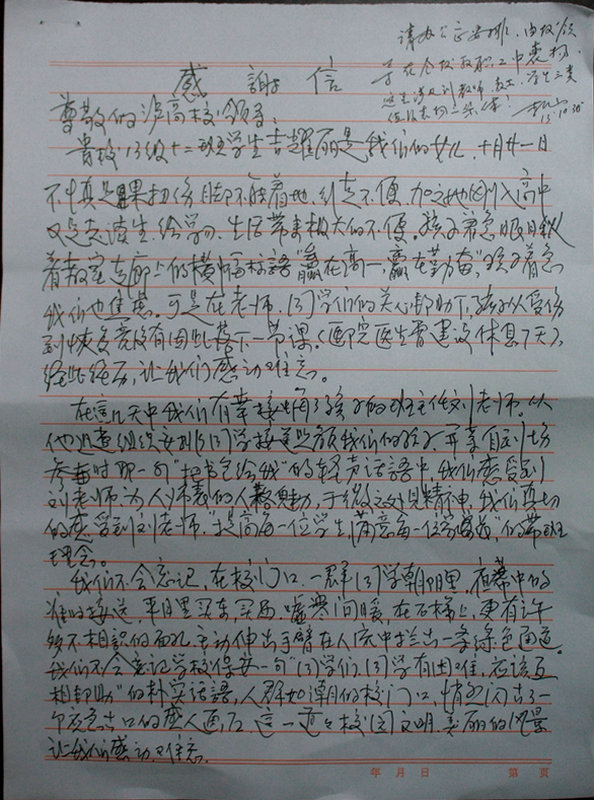 请办公室安排，由校领
导在全校教职工中表扬，
13.10.30
感謝信
尊敬的泸高校领导：
贵校13级十二班学生吉耀丽是我们的女儿，十月廿一日
不慎足踝扭伤，脚不能着地，行走不便，加之她刚入高中
又是走读生，给学习、生活带来极大的不便。孩子着急，眼目望
着教室走廊上的横幅校語"赢在高一，赢在勤奋"孩子着急
我们也焦急。可是在老师、同学们的关心帮助下，孩子从受伤
到恢复竟没有因此落下一节课。（医院医生曾建议休息7天），
经此经历，让我们感动难忘。
在這几天中我们有幸接触了孩子的班主任刘老师。从
他迅速组织安排同学接送照顾我们的孩子，并亲自到场
参与时那一句"把书包给我"的轻声话語中，我们感受到
刘老师为人师表的人格魅力，于微之处見精神，我们真切
的感受到刘老师"提高每一位学生，满意每一位家長"的带班
理念。
我们不会忘记，在校门口，一群同学朝阳里，夜幕中的
准时接送，平日里买东，买西，嘘寒问暖，在石梯上，更有许
多不相識的面孔主动伸出手臂在人流中拦出一条绿色通道。
我们不会忘记学校保安一句"同学们，同学有困难，应该互
相帮助"的朴实话語，人群如潮的校门口，悄然闪出了一
个应急出口的感人画面。這一道道校园文明、美丽的风景
让我们感动，难忘。
年 月 日 第 页